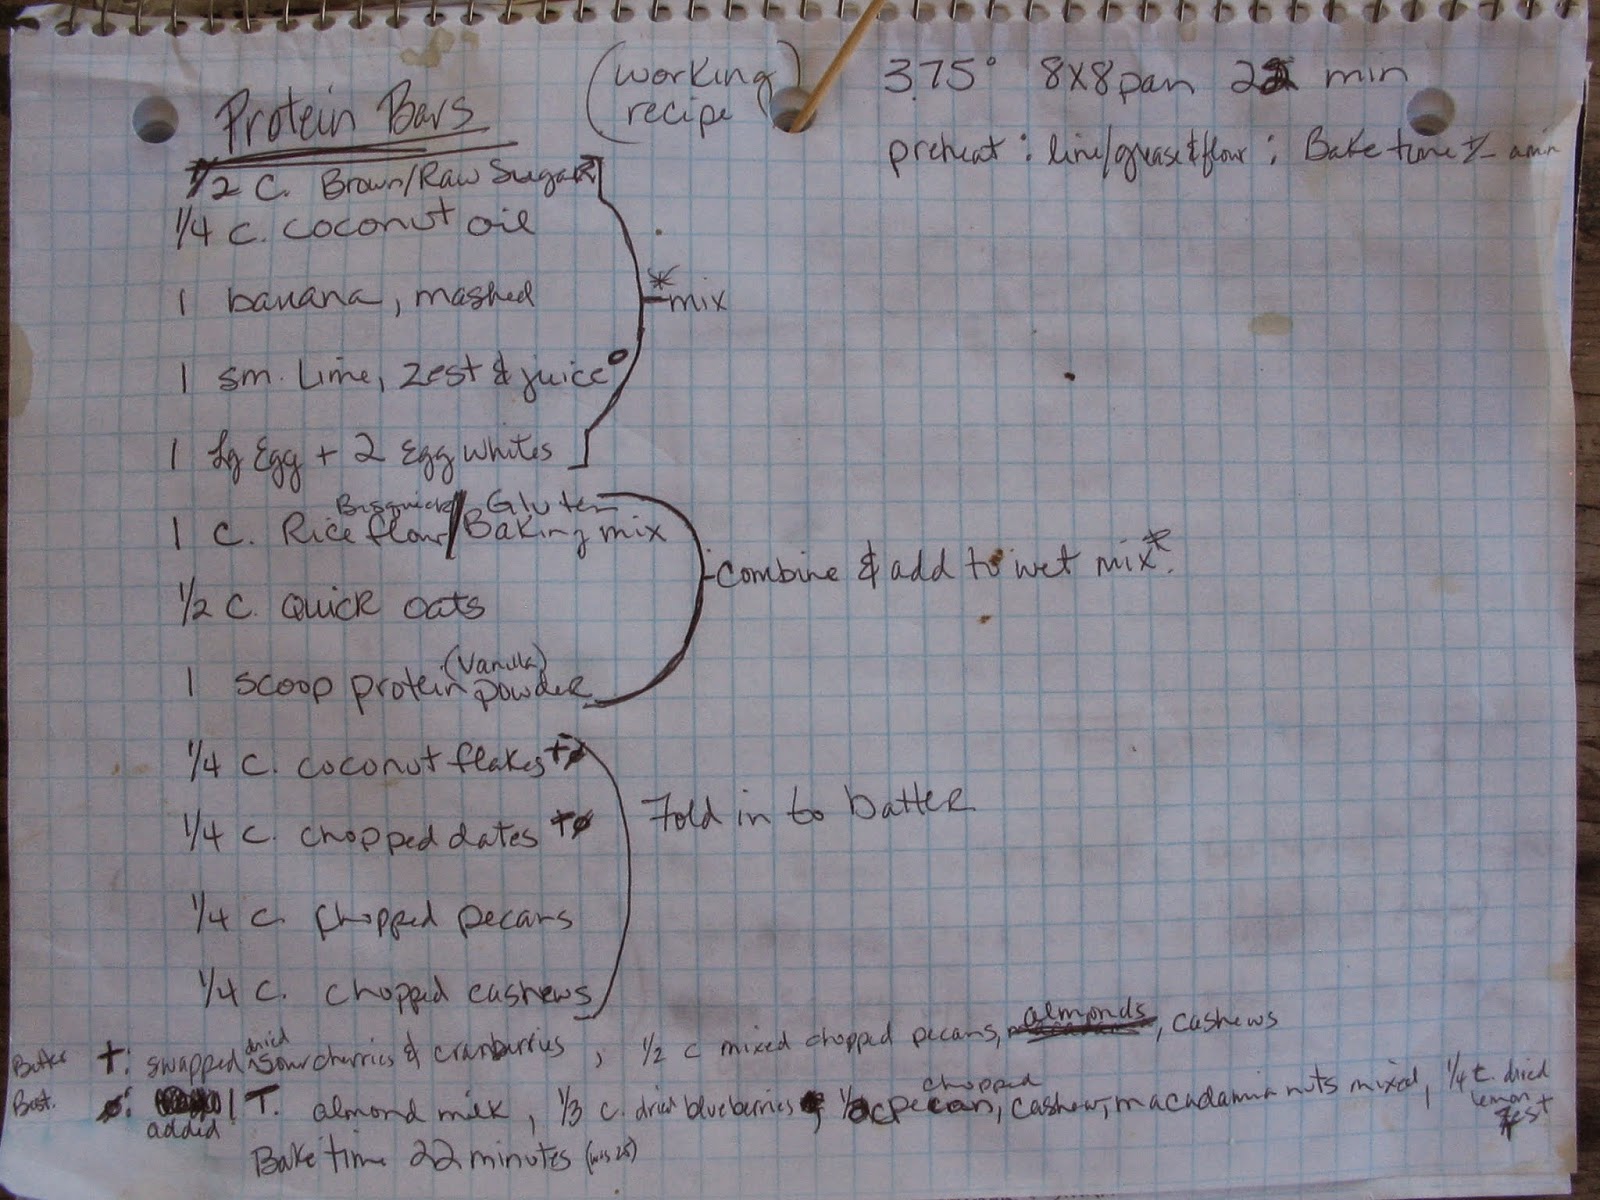 Protein Bars
(working recipe)
375° 8x8 pan 22 min
preheat : line/grease & flour ; Bake time
1/2 C. Brown/Raw Sugar
1/4 C. coconut oil
1 banana, mashed
*mix
1 sm. Lime, zest & juice
1 Lg Egg + 2 Egg whites
Bisquick Gluten
1 C. Rice flour/Baking mix
combine & add to wet mix*.
1/2 C. Quick oats
(Vanilla)
1 scoop protein powder
1/4 C. coconut flakes +ø
1/4 C. chopped dates +ø
Fold in to batter
1/4 C. chopped pecans
1/4 C. chopped cashews
Better +: swapped dried sour cherries & cranberries , 1/2 c mixed chopped pecans, almonds, cashews
Best. ø: added 1 T. almond milk, 1/3 c. dried blueberries chopped pecan, cashew, macadamia nuts mixed, 1/4 t. dried lemon zest
Bake time 22 minutes (was 25)